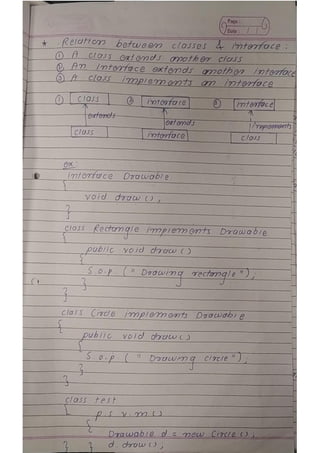 Page: 6
Date: 1 1
* Relation between classes & interface:
① A class extends another class
② An interface extends another interface
③ A class implements an interface
① class ② interface ③ interface
extends extends implements
class interface class
ex:
interface Drawable
{
void draw();
}
class Rectangle implements Drawable
{
public void draw()
{
S.o.p. ("Drawing rectangle");
}
}
class Circle implements Drawable
{
public void draw()
{
S.o.p ("Drawing circle");
}
}
class test
{ p.s.v.m.()
{
Drawable d = new Circle();
} } d.draw();